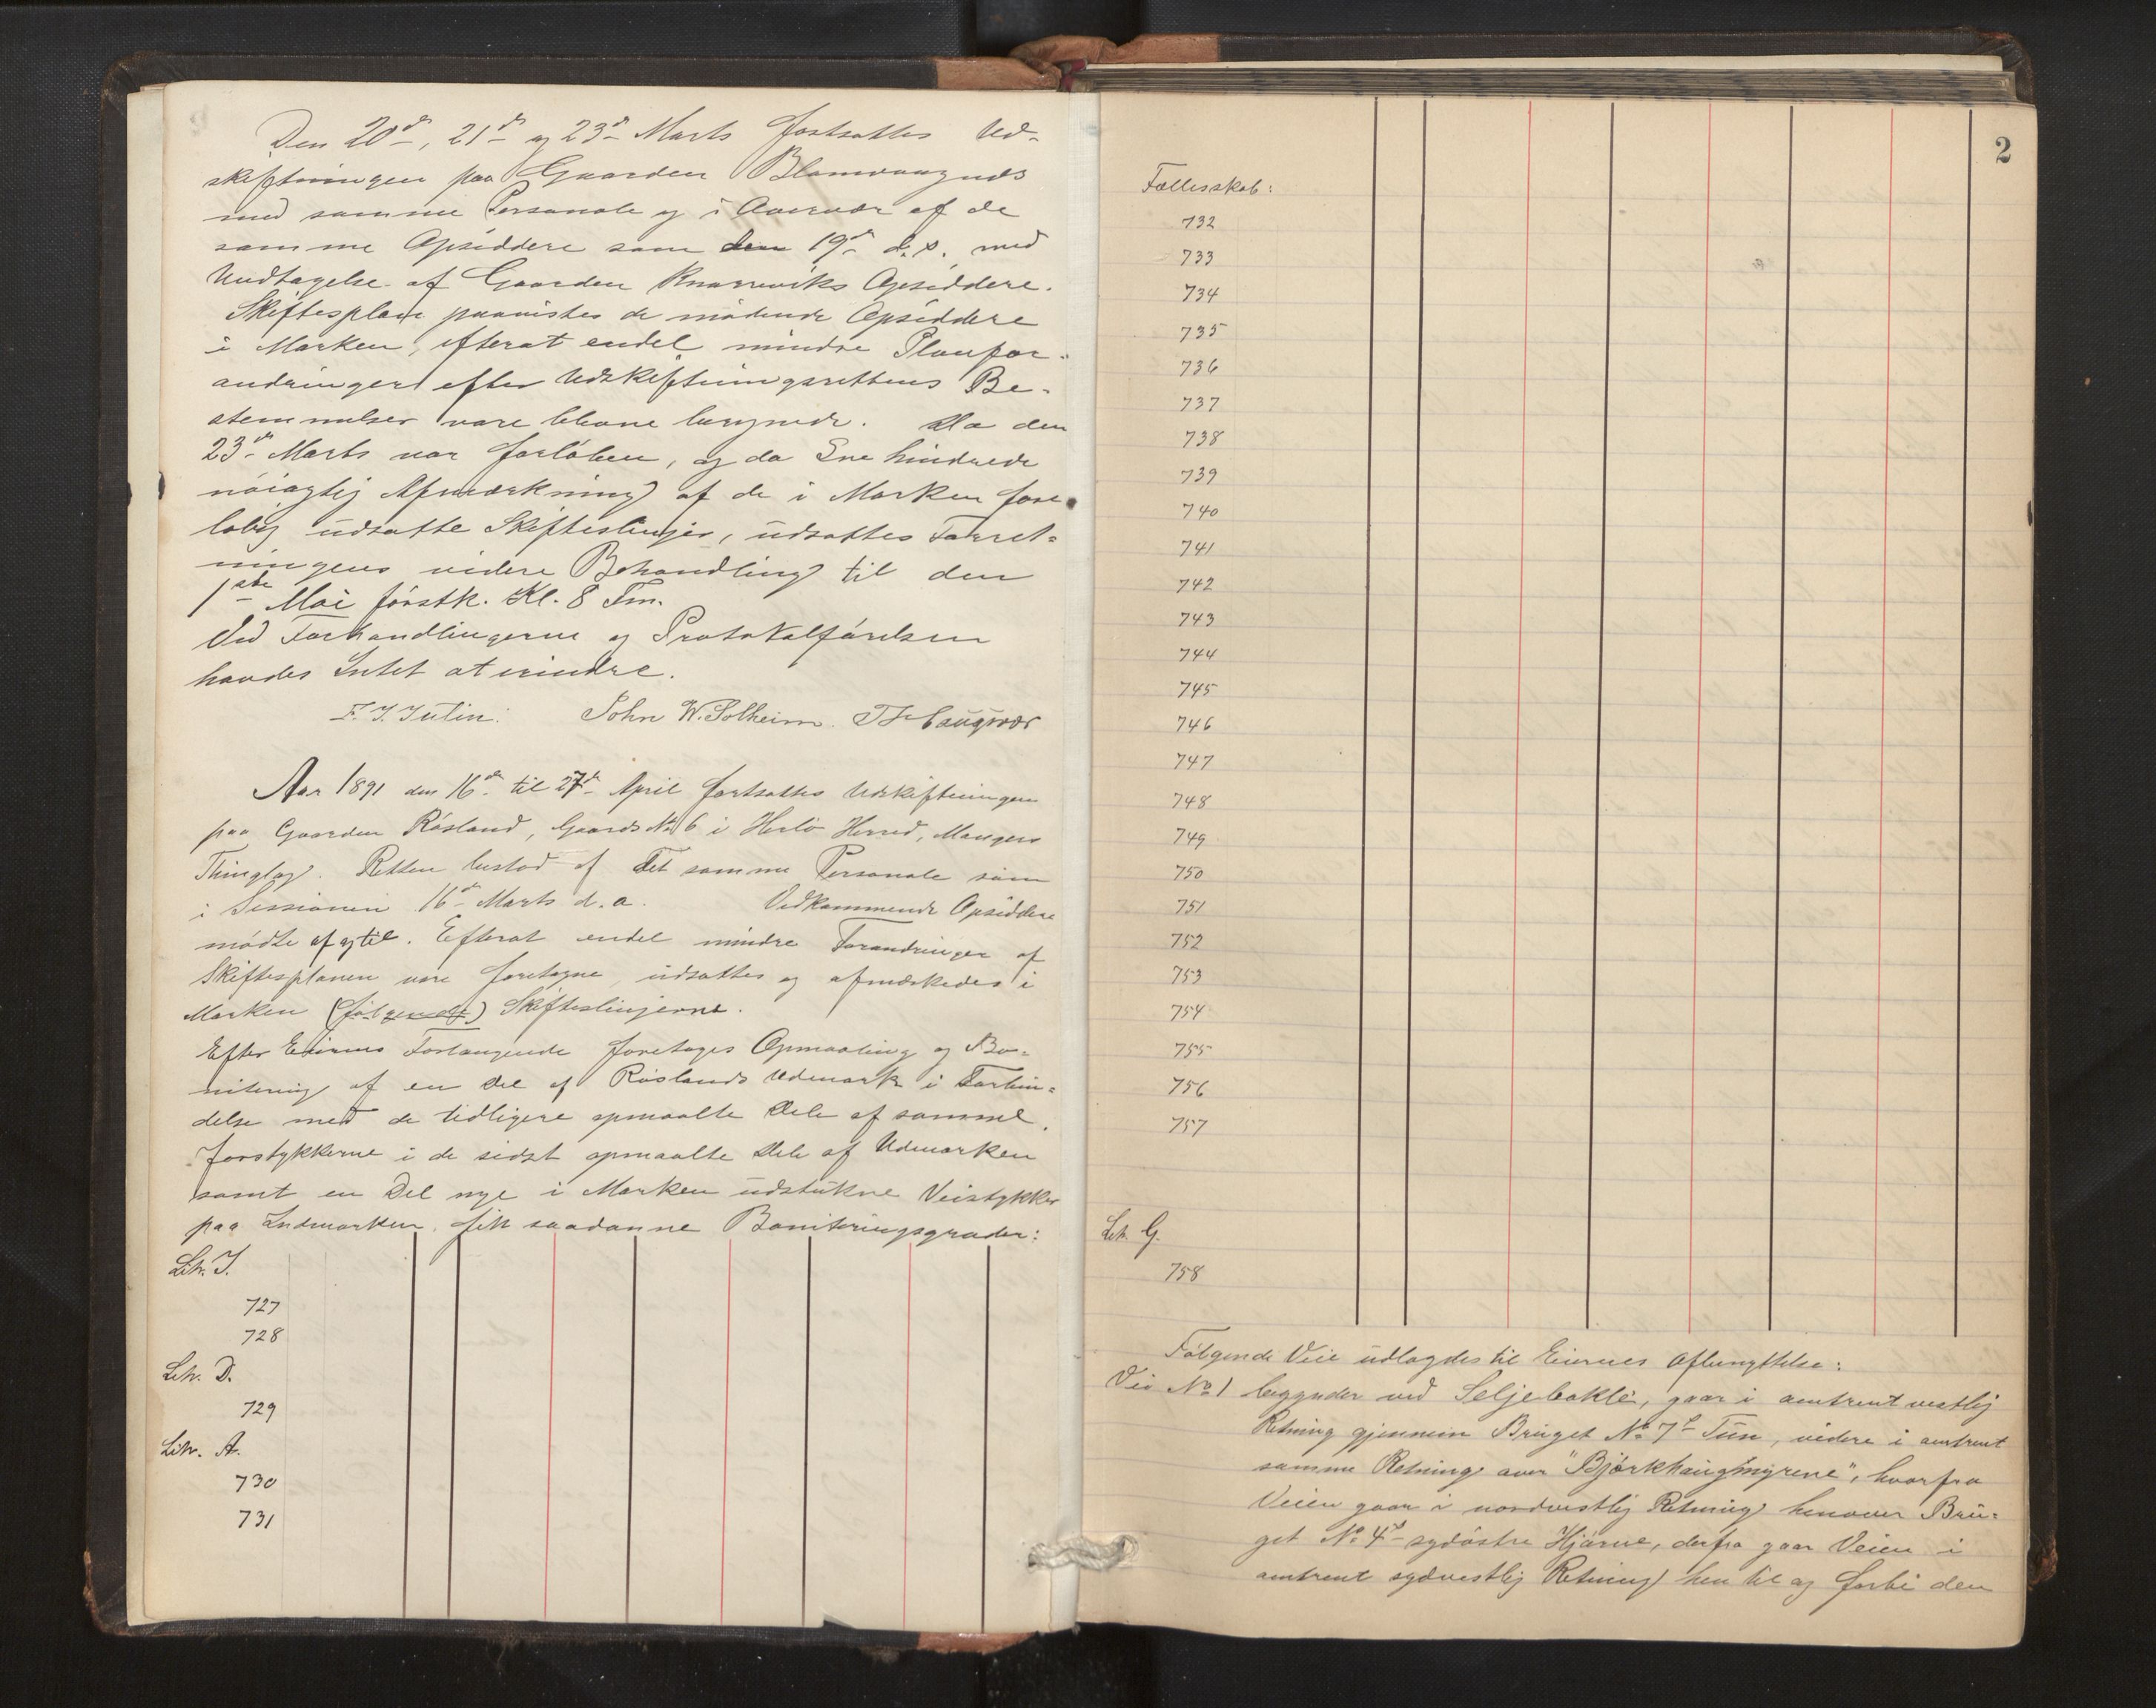 Den 20de, 21de og 23de Marts fortsattes Ud-
skiftningen paa Gaarden Blomvaagnæs
med samme Personale og i Overvær af de
samme Opsiddere som den 19de d.s. med
Undtagelse af Gaarden Knarreviks Opsiddere.
Skiftesplane paavistes de mødende Opsiddere
i Marken, efterat endel mindre Planfor-
andringer efter Udskiftningsrettens Be-
stemmelser vare blevne besynede. Da den
23de Marts var forløben, og da Sne hindrede
nøiagtig Afmærkning af de i Marken fore-
løbig udsatte Skifteslinjer, udsattes Forret-
ningens videre Behandling til den
1ste Mai førstk. Kl. 8 Fm.
Ved Forhandlingerne og Protokolførelsen
havdes Intet at erindre.
F. J. Julin. John W. Solheim.
Aar 1891 den 16de til 27de April fortsattes Udskiftningen
paa Gaarden Røsland, Gaards No. 6 i Herlø Herred, Mangers
Thinglag. Retten bestod af det samme Personale som
i Sessionen 16de Marts d.a. Vedkommende Opsiddere
mødte af og til. Efterat endel mindre Forandringer af
Skiftesplanen vare foretagne, udsattes og afmærkedes i
Marken (følgende) Skifteslinjerne.
Efter Eiernes Forlangende foretoges Opmaaling og Bo-
nitering af en Del af Røslands Udmark i Forbin-
delse med de tidligere opmaalte Dele af samme.
Jorstykkerne i de sidst opmaalte Dele af Udmarken
samt en Del nye i Marken udstukne Veistykker
paa Indmarken, fik saadanne Boniteringsgrader:
Litr. I.
727
728
Litr. D.
729
Litr. A.
730
731
2
Fællesskab:
732
733
734
735
736
737
738
739
740
741
742
743
744
745
746
747
748
749
750
751
752
753
754
755
756
757
Litr. G.
758
Følgende Veie udlagdes til Eiernes Afbenyttelse:
Vei No 1 begynder ved Seljebakke, gaar i omtrent vestlig
Retning gjennem Bruget No 7s Tun, videre i omtrent
samme Retning over "Bjørkhaugmyrene", hvorfra
Veien gaar i nordvestlig Retning henover Bru-
get No 4s sydøstre Hjørne, derfra gaar Veien i
omtrent sydvestlig Retning hen til og forbi den